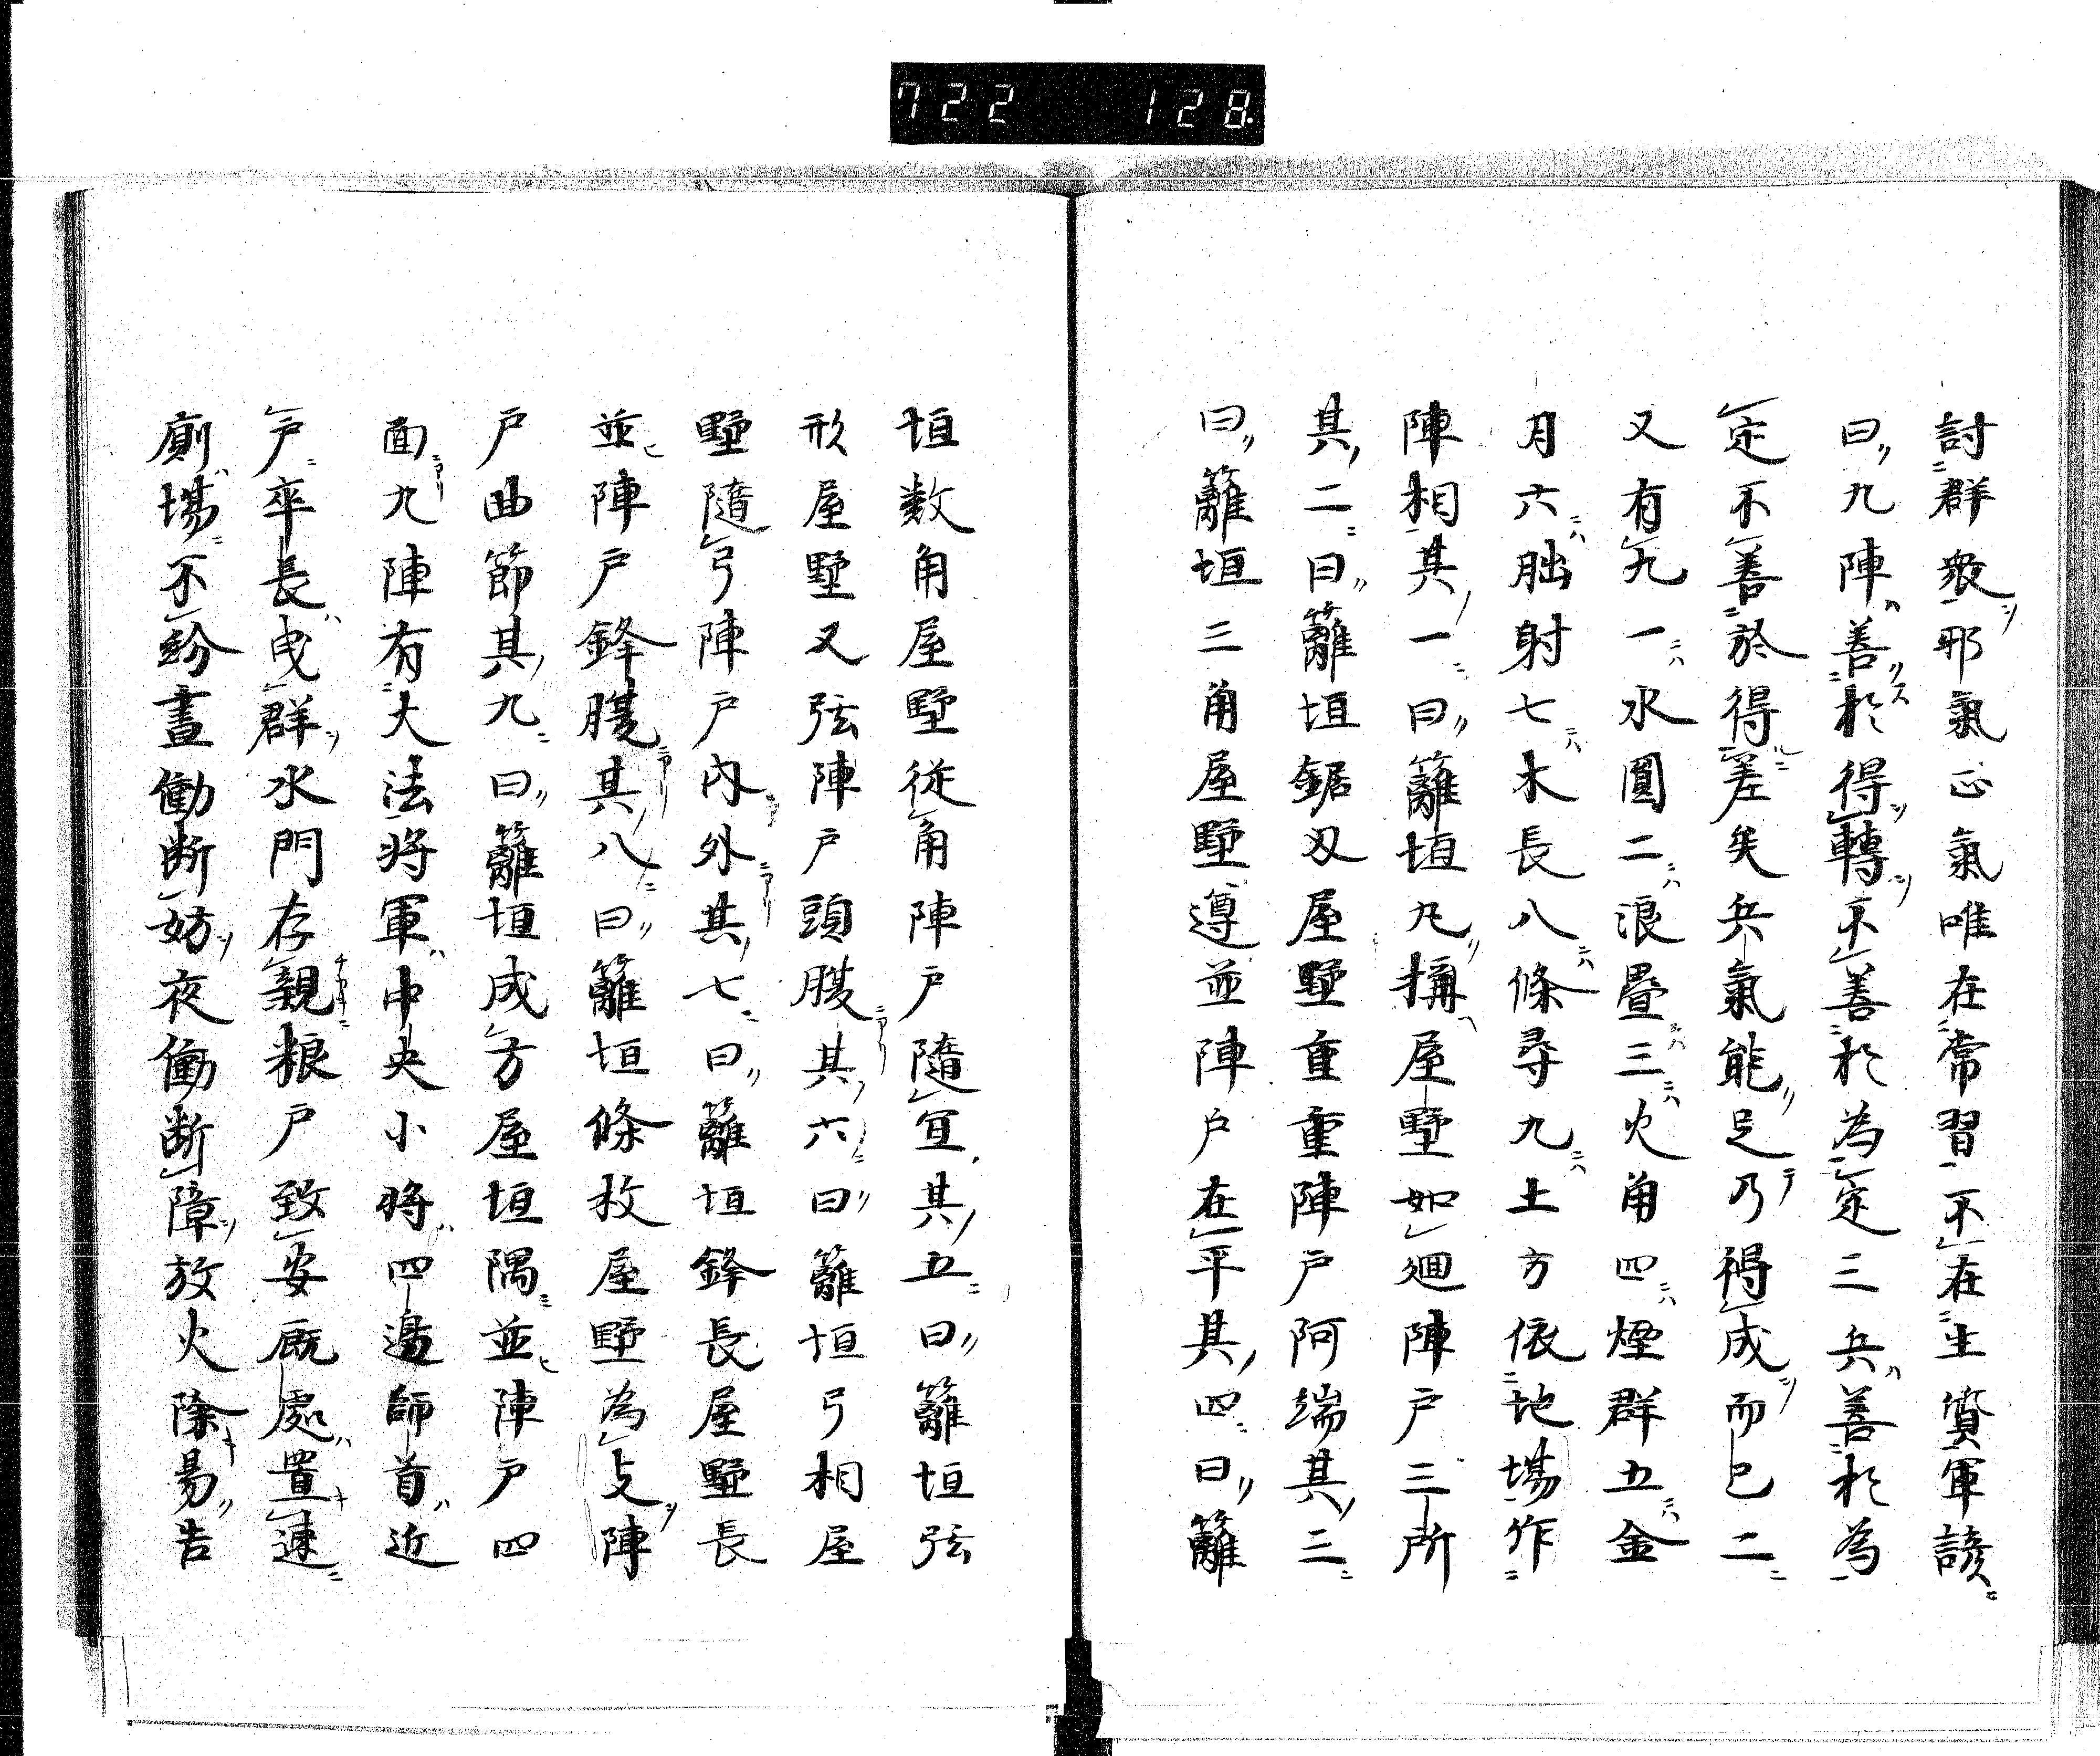 722 128
討群衆邪氣正氣唯在常習不在生質軍諺
曰九陣善於得轉不善於為定三兵善於為
定不善於得差矣兵氣能足乃得成而已二
又有九一水圓二浪疊三火角四煙群五金
月六朏射七木長八條尋九土方依地場作
陣相其一曰籬垣九搆屋墅如廻陣戸三所
其二曰籬垣鋸刄屋墅重重陣戸阿端其三
曰籬垣三角屋墅遵並陣戸在平其四曰籬
垣数角屋墅従角陣戸隨宜其五曰籬垣弦
形屋墅又弦陣戸頭腹其六曰籬垣弓相屋
墅隨弓陣戸内外其七曰籬垣鋒長屋墅長
並陣戸鋒腹其八曰籬垣條枚屋墅為陣
戸曲節其九曰籬垣成方屋垣隅並陣戸四
面九陣有大法将軍中央小将四邉師首近
戸卒長曳群水門存親粮戸致安厩處置速
廁場不紛晝働断妨夜働断障放火除易告